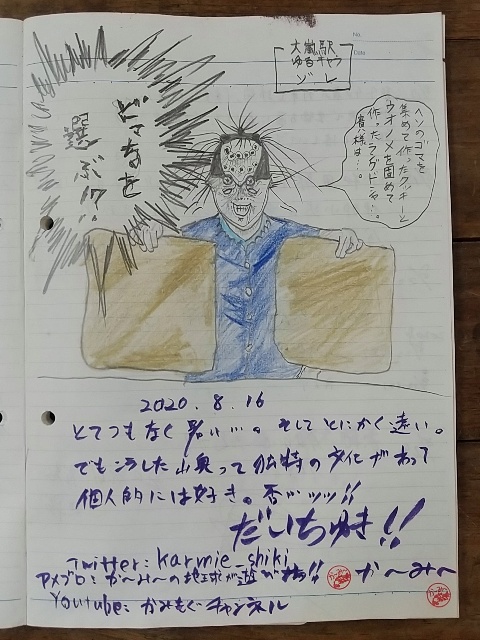 大嵐駅
ゆるキャラ
ゾレ
No.
Date
どちらを
選ぶ!?
ヘソのゴマを
集めて作ったクッキーと
ウオノメを固めて
作ったラングドシャ…。
貴様は…。
2020.8.16
とてつもなく暑い…。そしてとにかく遠い。
でもこうした山奥って独特の文化があって
個人的には好き。否ッッッ!!
だいちゅき!!
Twitter: karmie_shiki
アメブロ: か〜み〜の地球が遊び場!! か〜み〜
Youtube: かみもぐチャンネル